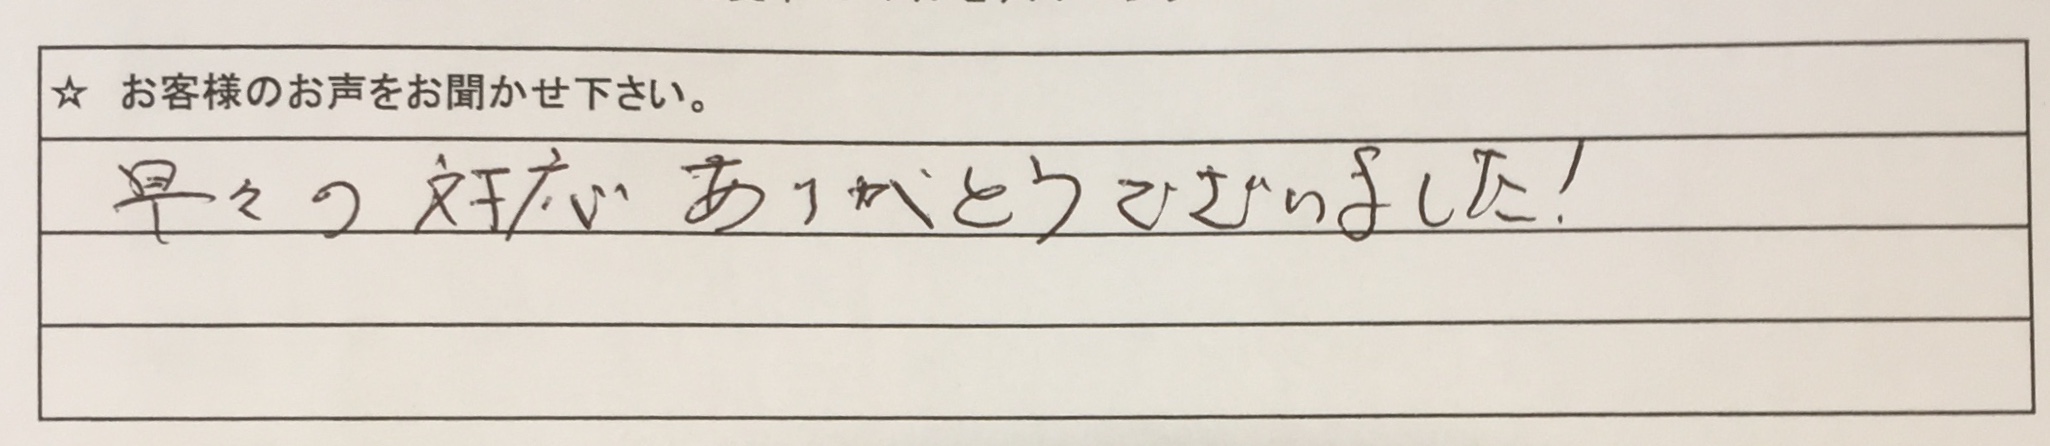 ☆ お客様のお声をお聞かせ下さい。
早々の対応ありがとうございました!